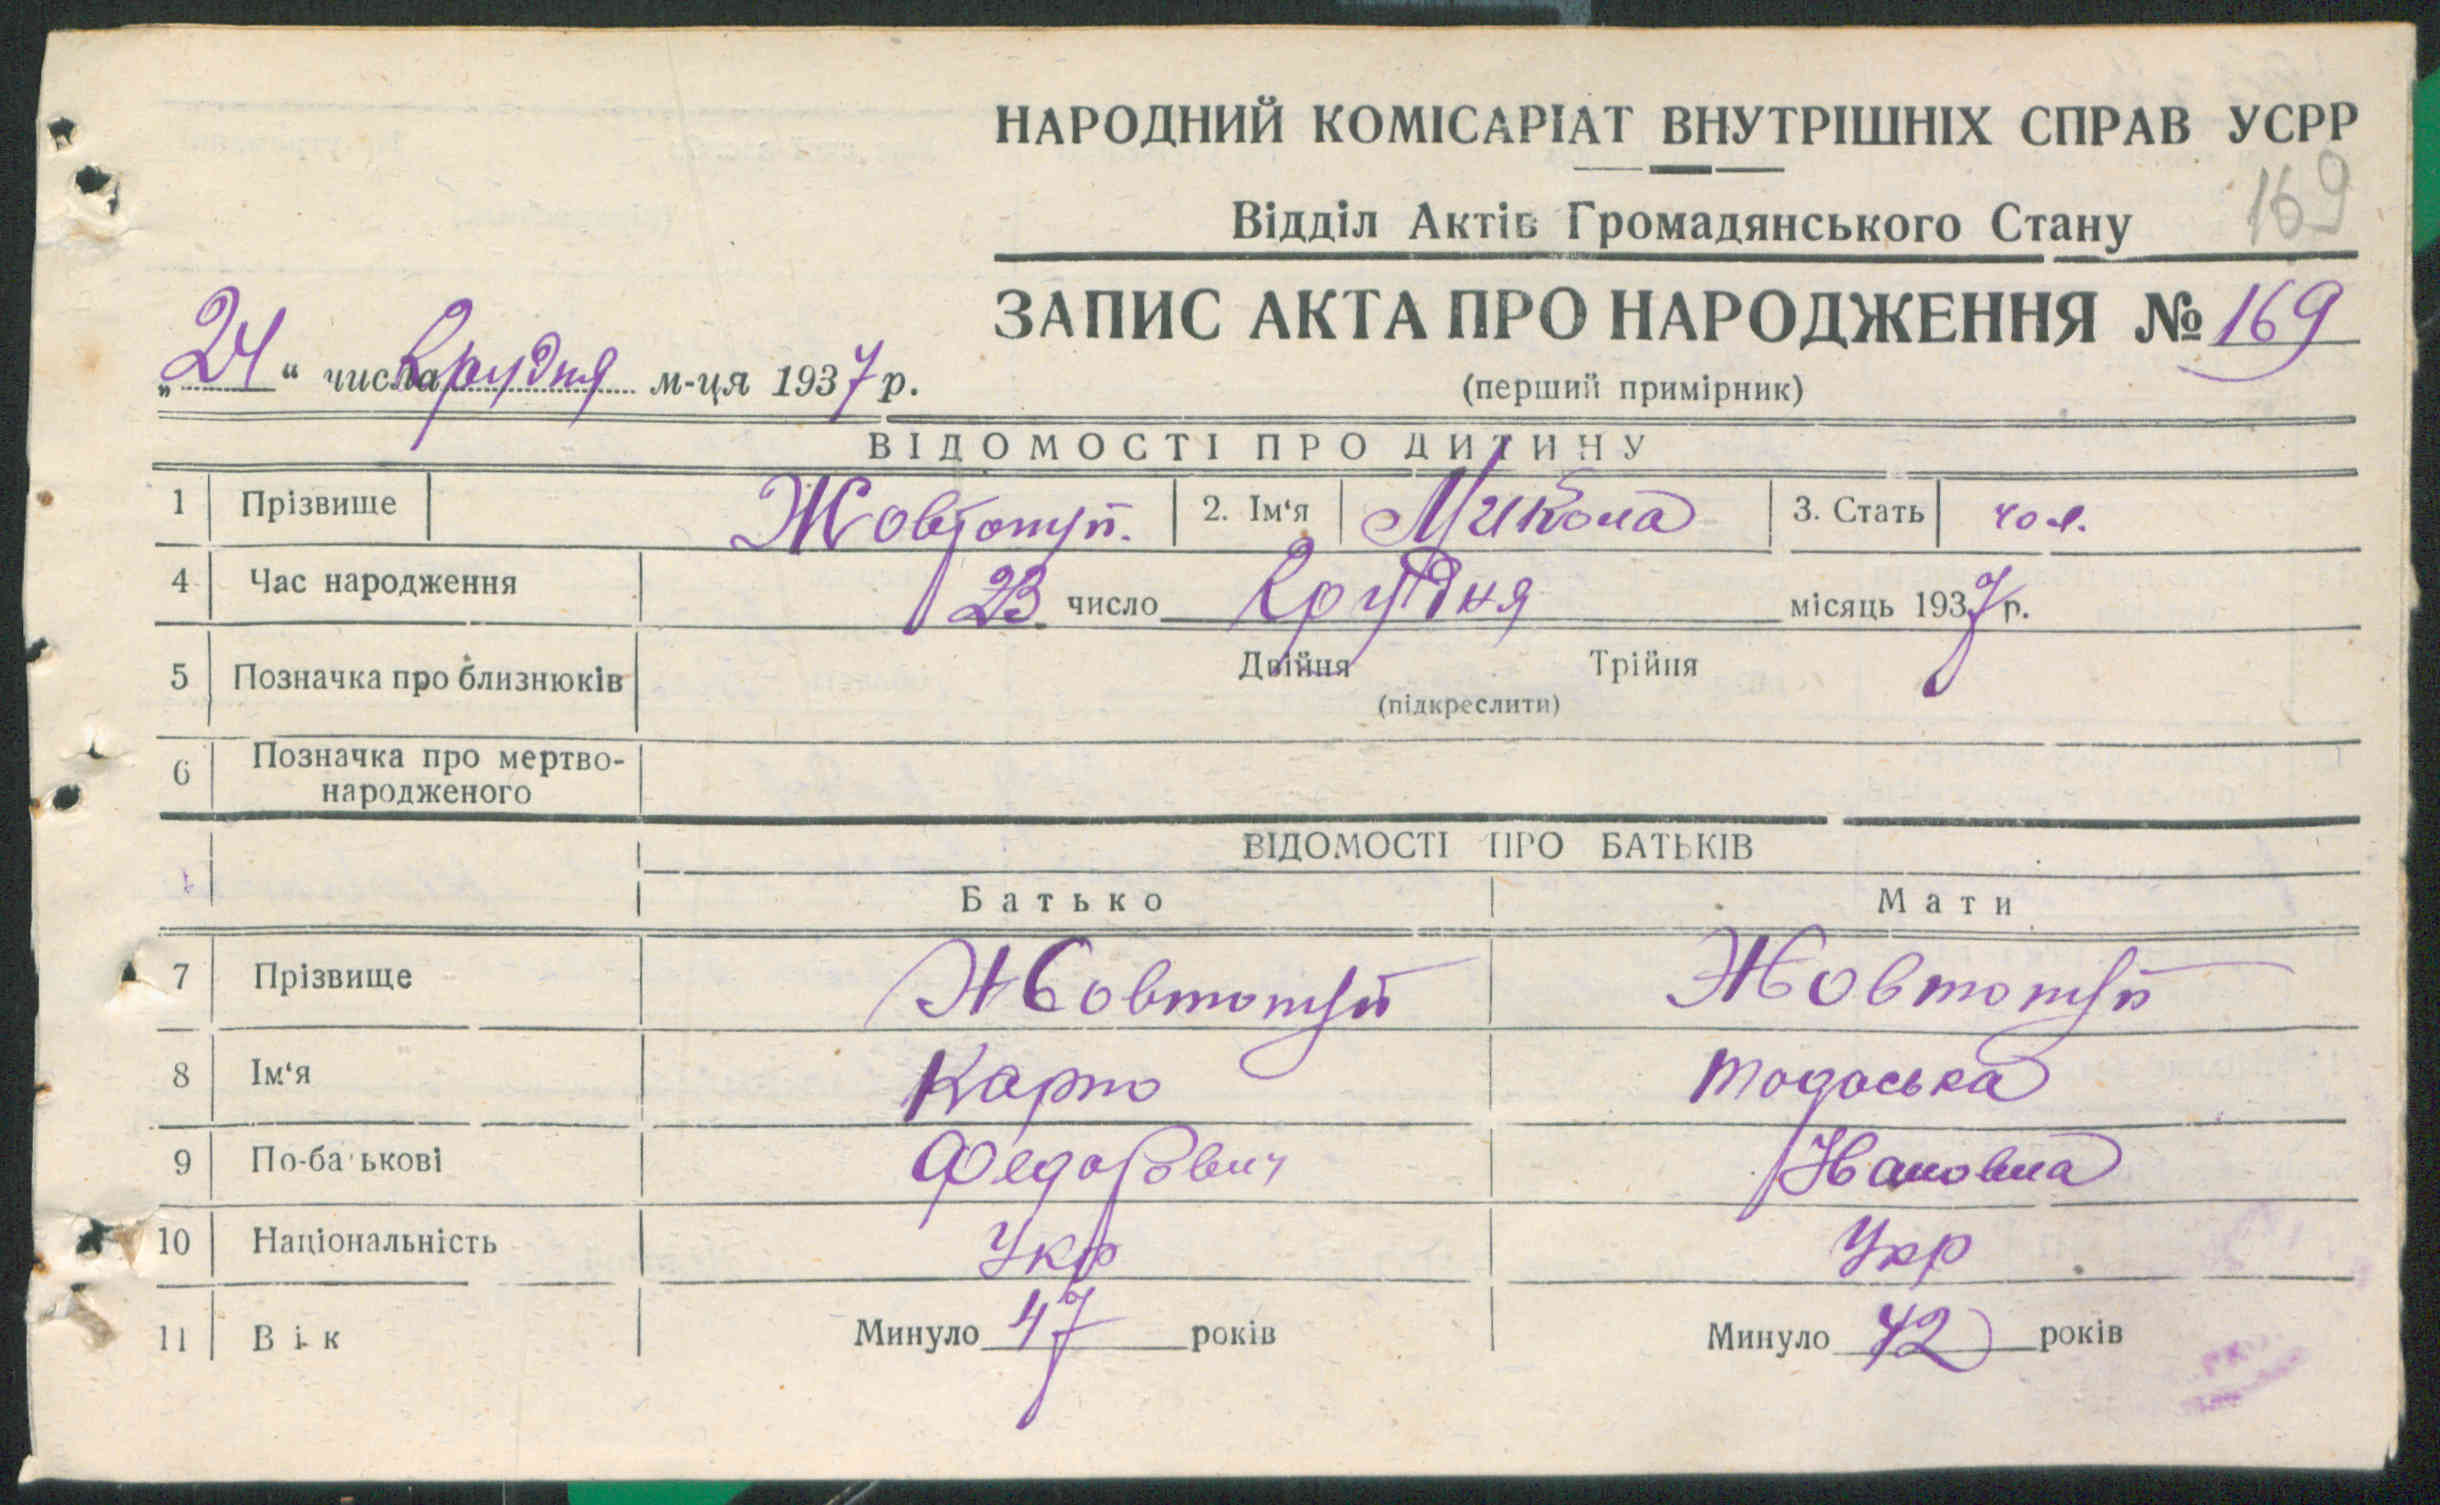 НАРОДНИЙ КОМІСАРІАТ ВНУТРІШНІХ СПРАВ УСРР
169
Відділ Актів Громадянського Стану
ЗАПИС АКТА ПРО НАРОДЖЕННЯ № 169
„24“ числа Грудня м-ця 1937 р.
(перший примірник)
ВІДОМОСТІ ПРО ДИТИНУ
1 Прізвище Жовтопуп. 2. Ім‘я Микола 3. Стать чол.
4 Час народження 23 число Грудня місяць 1937 р.
5 Позначка про близнюків Двійня Трійня
(підкреслити)
6 Позначка про мертво-
народженого
ВІДОМОСТІ ПРО БАТЬКІВ
Батько Мати
7 Прізвище Жовтопуп Жовтопуп
8 Ім‘я Карпо Тодоська
9 По-ба ькові Федорович Івановна
10 Національність Укр Укр
11 Вік Минуло 47 років Минуло 42 років